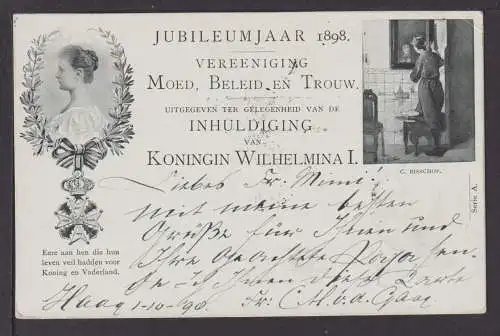 JUBILEUMJAAR 1898.
VEREENIGING
MOED, BELEID EN TROUW.
UITGEGEVEN TER GELEGENHEID VAN DE
INHULDIGING
VAN
KONINGIN WILHELMINA I.
C. BISSCHOP.
Serie A.
Eere aan hen die hun
leven veil hadden voor
Koning en Vaderland.
Liebes Fr. Mimi!
mit meine besten
Grüße für Ihnen und
Ihre Papa sen-
de ich Ihnen diese Karte
Haag 1-10-98. Fr. C. H. v. d. Gaag